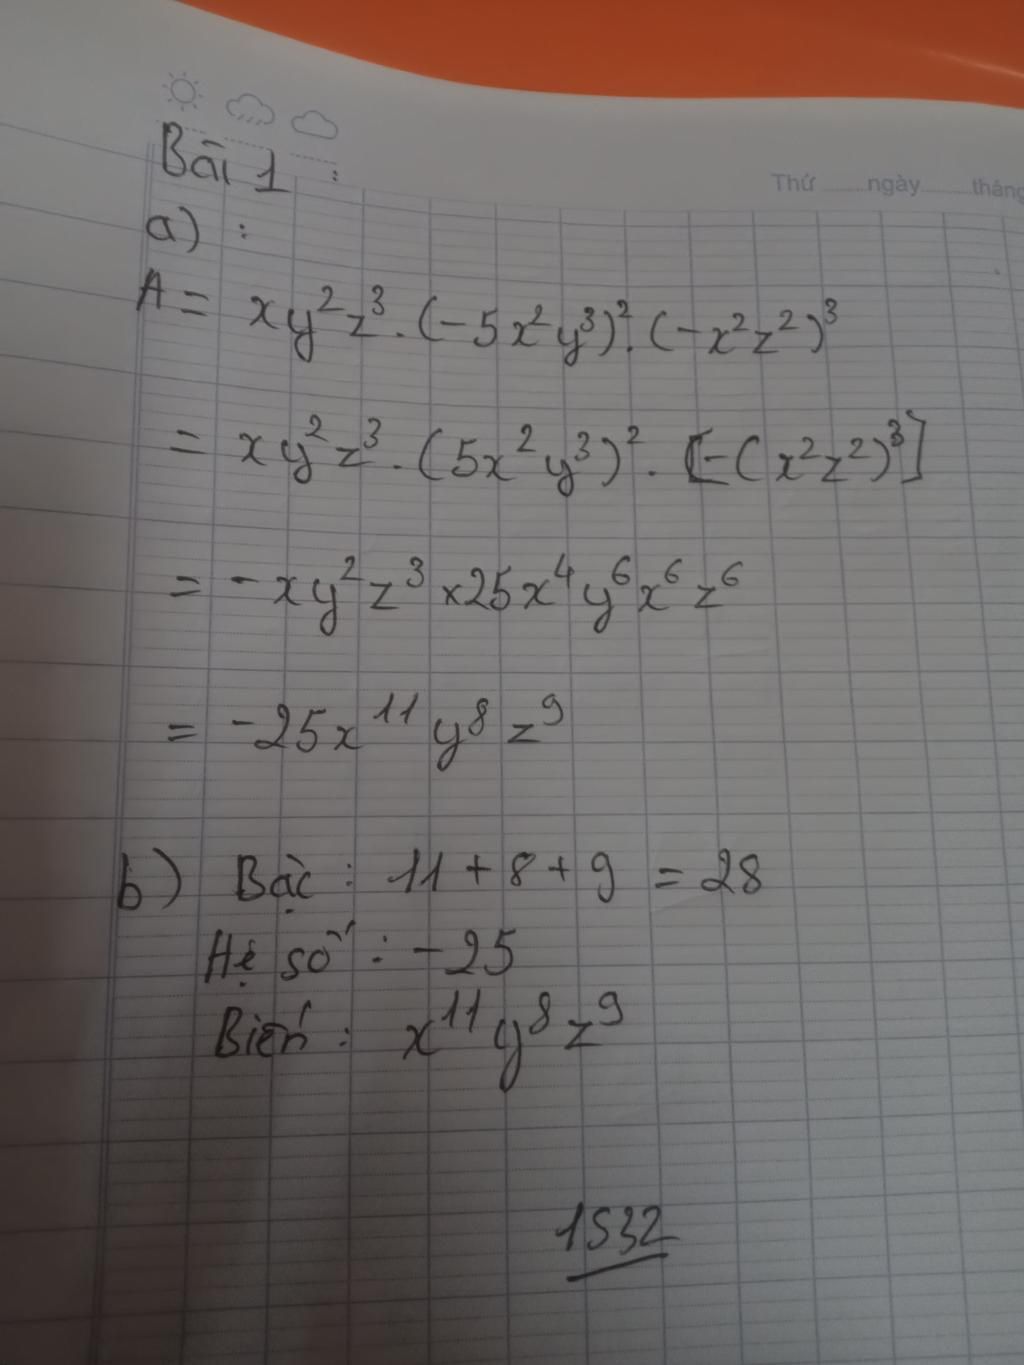 Thứ ngày tháng
Bài 1 :
a) :
A = xy²z³ . (-5x²y³)² . (-x²z²)³
= xy²z³ . (5x²y³)² . [-(x²z²)³]
= -xy²z³ ×25x⁴y⁶x⁶z⁶
= -25x¹¹y⁸z⁹
b) Bậc : 11 + 8 + 9 = 28
Hệ số : -25
Biến : x¹¹y⁸z⁹
1532